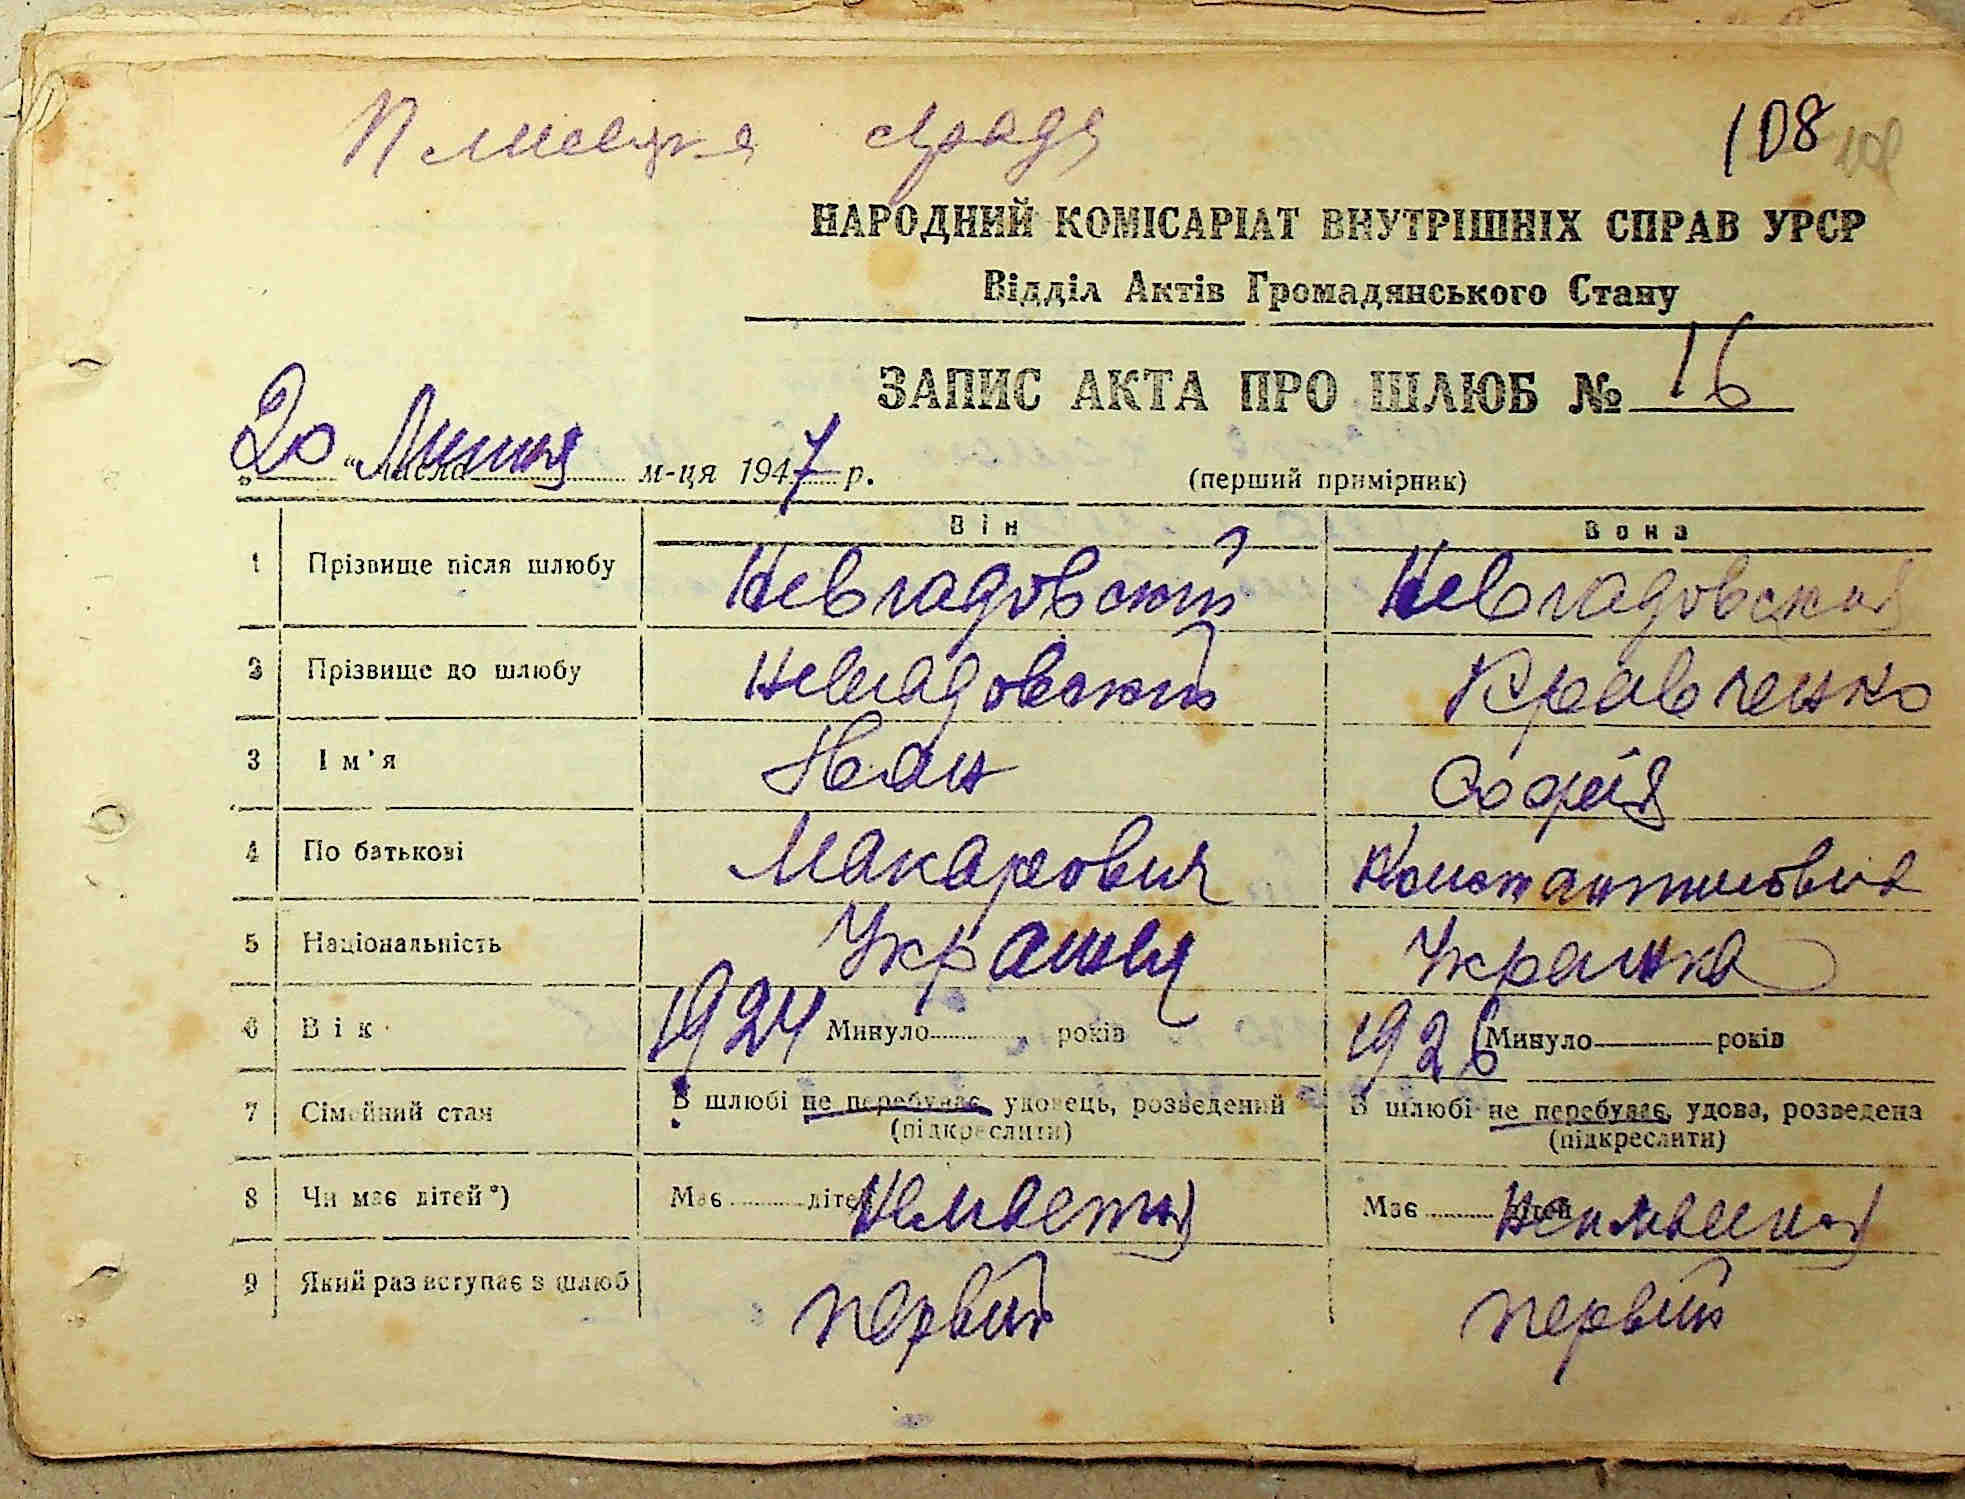 Плисецка с/рада
108 108
НАРОДНИЙ КОМІСАРІАТ ВНУТРІШНІХ СПРАВ УРСР
Відділ Актів Громадянського Стану
ЗАПИС АКТА ПРО ШЛЮБ № 16
„20 “ числа Липня м-ця 1947 р. (перший примірник)
Він Вона
1 Прізвище після шлюбу Невгадовський Невгадовская
2 Прізвище до шлюбу Невгадовский Кравченко
3 Ім'я Иван Софія
4 По батькові Макарович Константиновна
5 Національність Украинец Украинка
6 Вік 1924 Минуло років 1926 Минуло років
7 Сімейний стан В шлюбі не перебуває, удовець, розведений В шлюбі не перебуває, удова, розведена
(підкреслити) (підкреслити)
8 Чи має дітей*) Має дітей Має дітей
9 Який раз вступає в шлюб первий первий